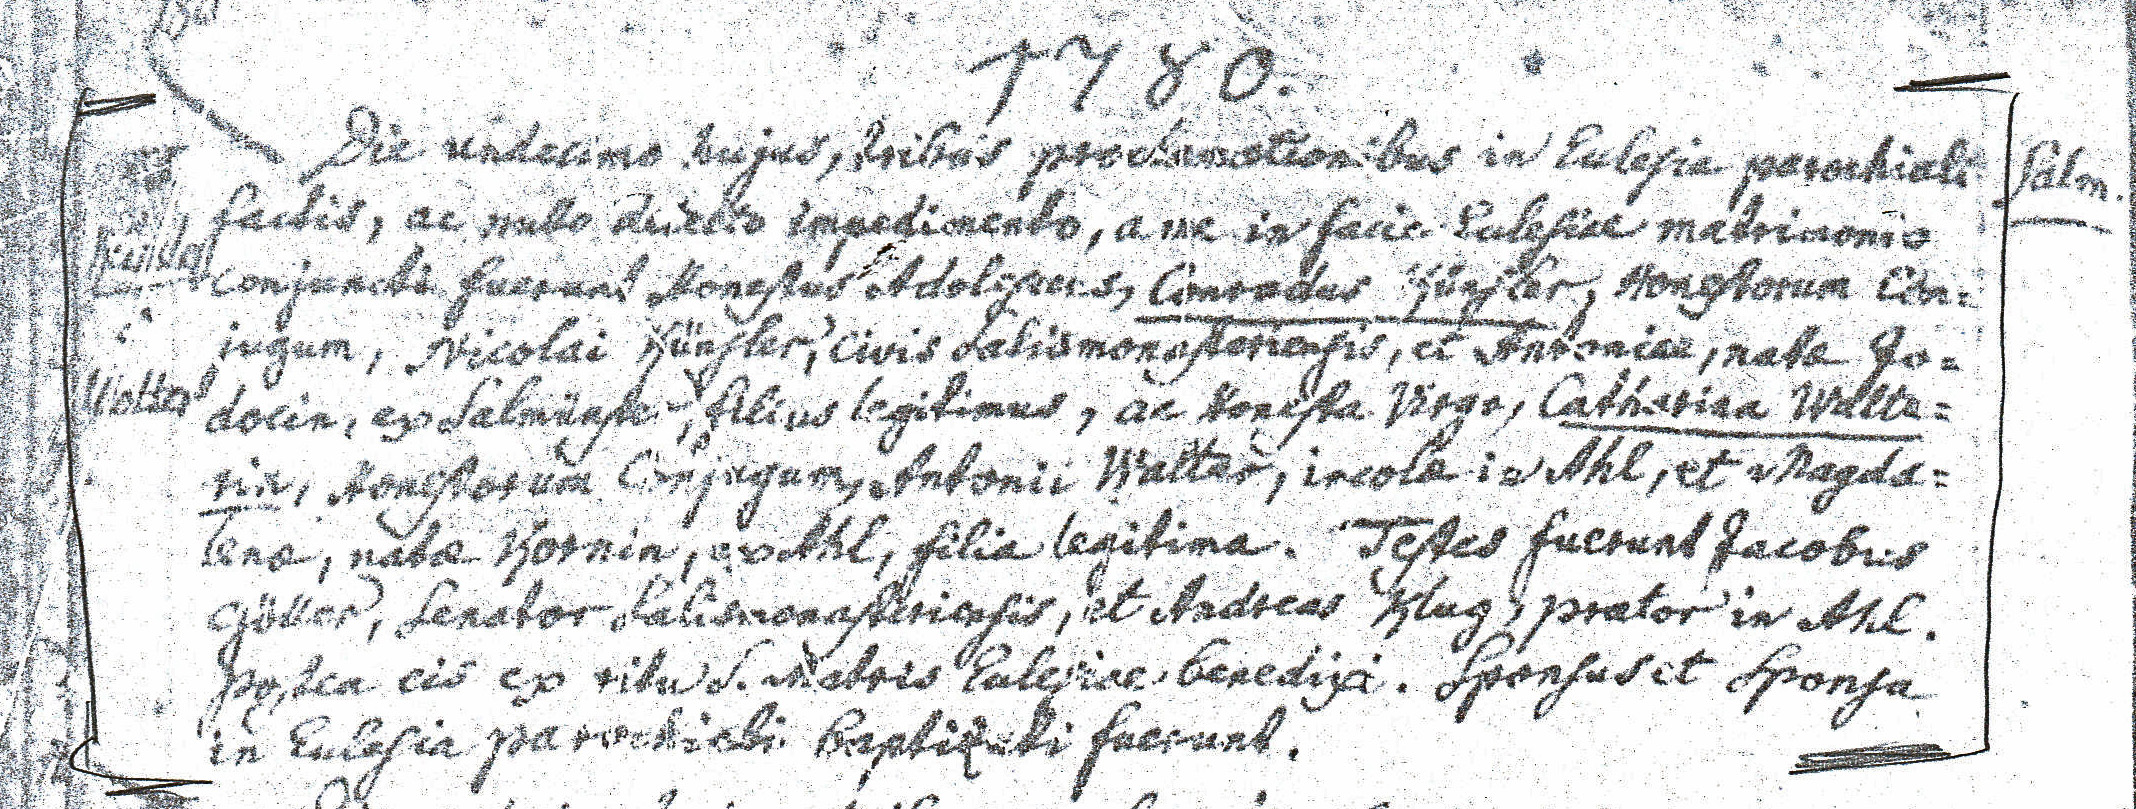 1780.
Die undecimo hujus, tribus proclamationibus in Ecclesia parochiali
Salm.
factis, ac nullo detecto impedimento, a me in facie Ecclesiae matrimonio
conjuncti fuerunt Honestus Adolescens, Conradus Künsler, Honestorum Con=
jugum, Nicolai Künsler, civis Salismonasteriensis, et Antoniae, natae Jo=
docin, ex Salmünster, filius legitimus, ac Honesta Virgo, Catharina Walte=
rin, Honestorum Conjugum, Antonii Walter, incolae in Ahl, et Magda=
lenae, natae Kornin, ex Ahl, filia legitima. Testes fuerunt Jacobus
Göller, Senator Salismonasteriensis, et Andreas Klug, praetor in Ahl.
postea eis ex ritu S. Matris Ecclesiae benedixi. Sponsus et Sponsa
in Ecclesia parochiali Baptizati fuerunt.